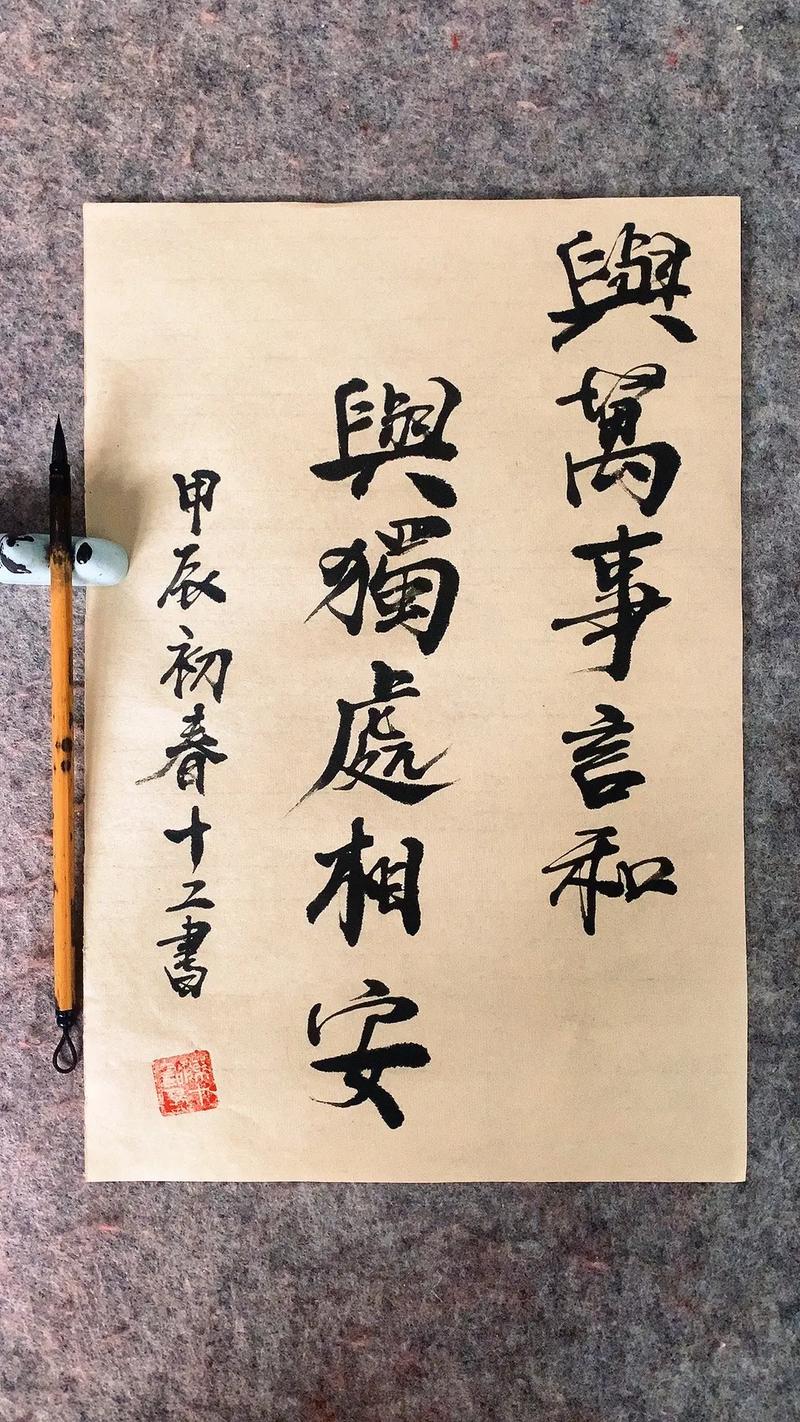 與萬事言和
與獨處相安
甲辰初春十二書